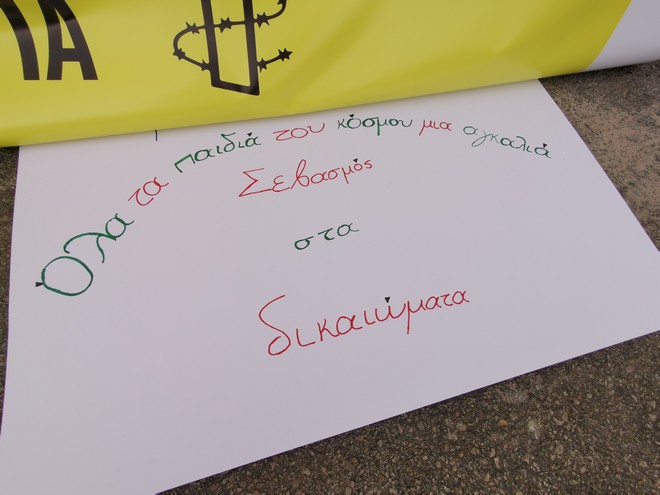 ΙΑ
Όλα τα παιδιά του κόσμου μια αγκαλιά
Σεβασμός
στα
δικαιώματα